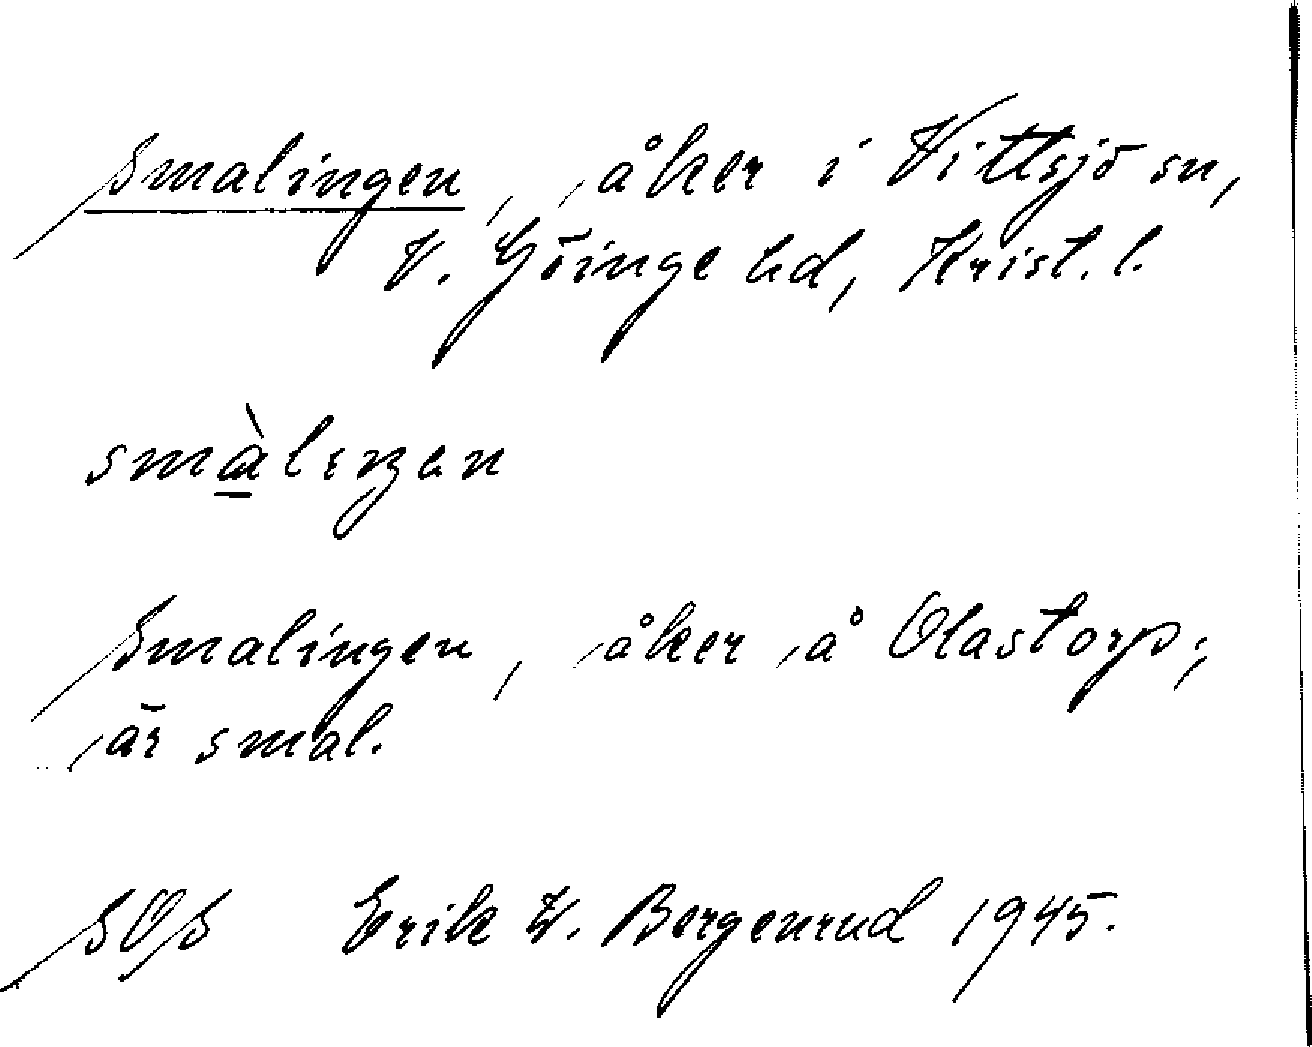 Smalingen, åker i Vittsjö sn,
V. Göinge hd, Krist. l.
smàlıŋan
Smalingen, åker å Olastorp;
är smal.
SOS Erik W. Bergenrud 1945.